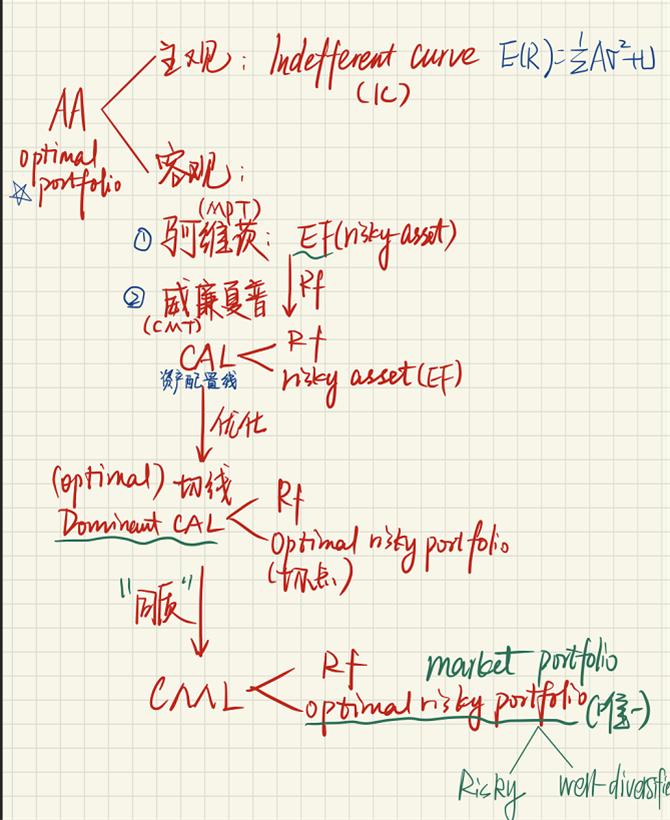 主观: Indefferent curve E(R)=½Aσ²+U
(IC)
AA
optimal
☆ portfolio
客观:
(MPT)
① 马可维茨: EF(risky asset)
Rf
② 威廉夏普
(CMT)
CAL
Rf
risky asset(EF)
资产配置线
优化
(optimal) 切线
Dominant CAL
Rf
Optimal risky portfolio
(切点)
"同质"
CML
Rf
market portfolio
optimal risky portfolio (唯一)
Risky
well-diversifie